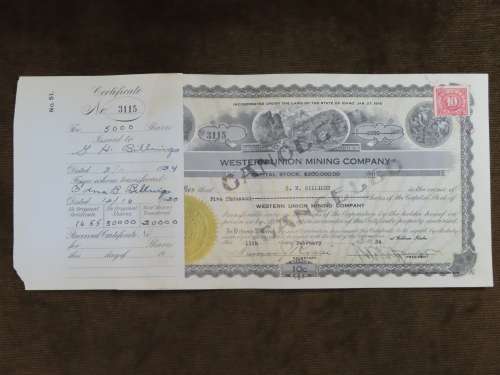 No. 51.
Certificate
No 3115
For 5000 Shares
Issued to
G. H. Billings
Dated
From whom transferred
Edna B. Billings
Dated
No. Original Certificate
No. Original Shares
No. Shares Transferred
1655 30000 20000
Received Certificate No
For Shares
this day of 19
INCORPORATED UNDER THE LAWS OF THE STATE OF IDAHO
3115
5000
10
WESTERN UNION MINING COMPANY
CAPITAL STOCK, $200,000.00
CANCELLED
CANCELLED
that G. H. BILLINGS is the owner of
Five thousand Shares of the Capital Stock of
WESTERN UNION MINING COMPANY
11th day of February 34
SECRETARY
PRESIDENT
10c